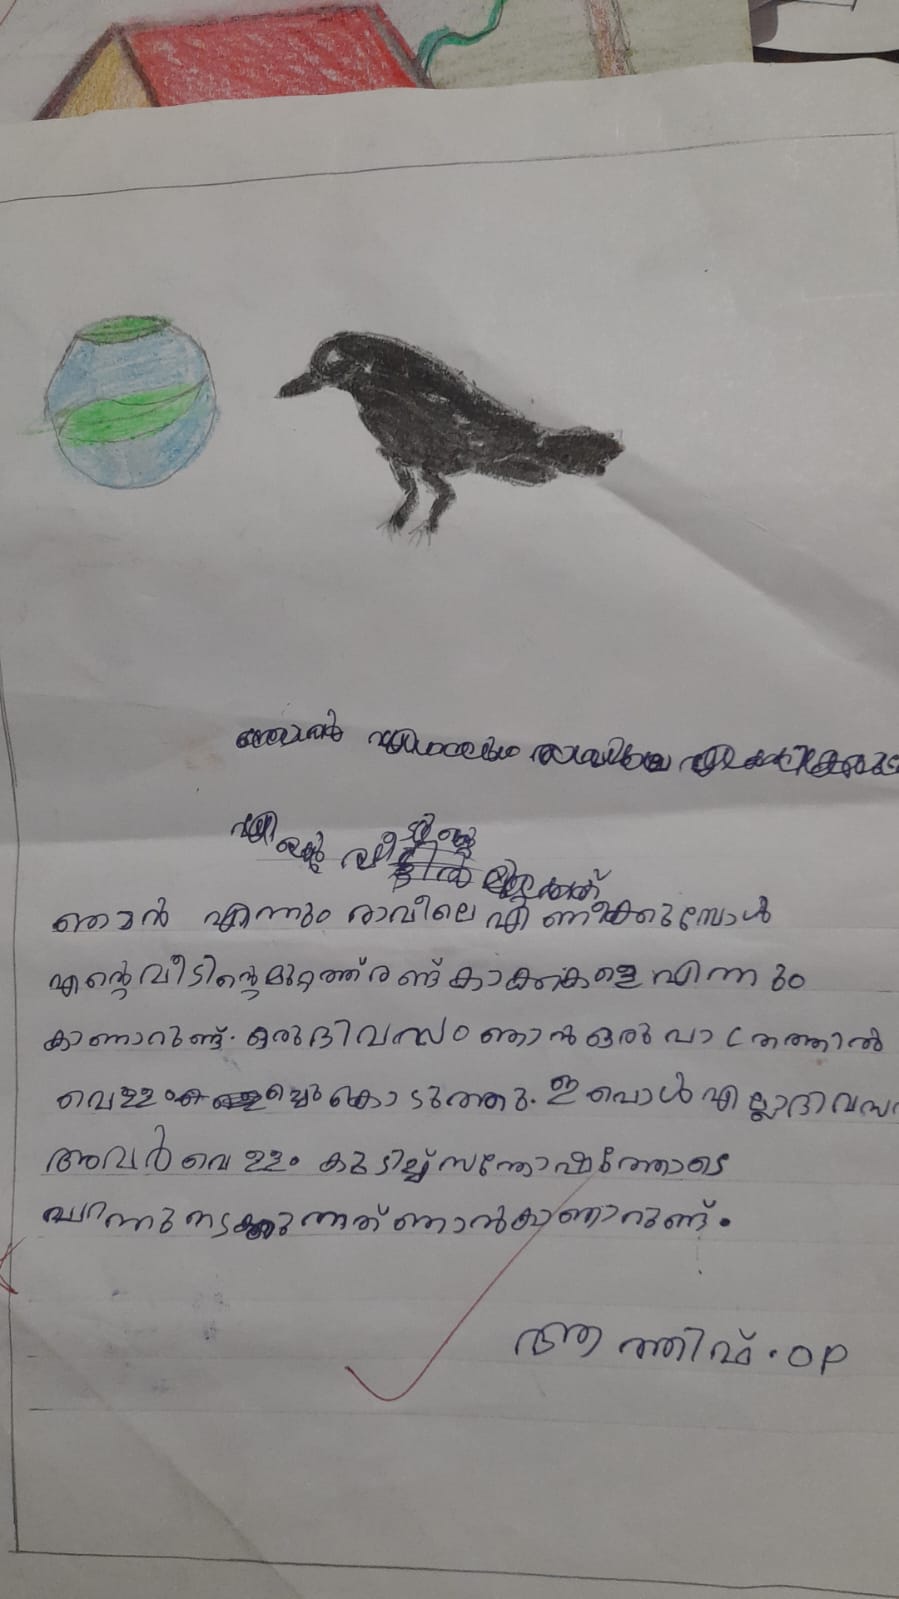 ഞാൻ എന്നും രാവിലെ എണീക്കുമ്പോൾ
എന്റെ വീടിന്റെ മുറ്റത്ത് രണ്ട് കാക്കകളെ എന്നും
കാണാറുണ്ട്. ഒരുദിവസം ഞാൻ ഒരു പാത്രത്തിൽ
വെള്ളം വെച്ചുകൊടുത്തു. ഇപൊൾ എല്ലാദിവസ
അവർ വെള്ളം കുടിച്ച് സന്തോഷത്തോടെ
പറന്നു നടക്കുന്നത് ഞാൻ കാണാറുണ്ട്.
ആത്തിഫ്. O P